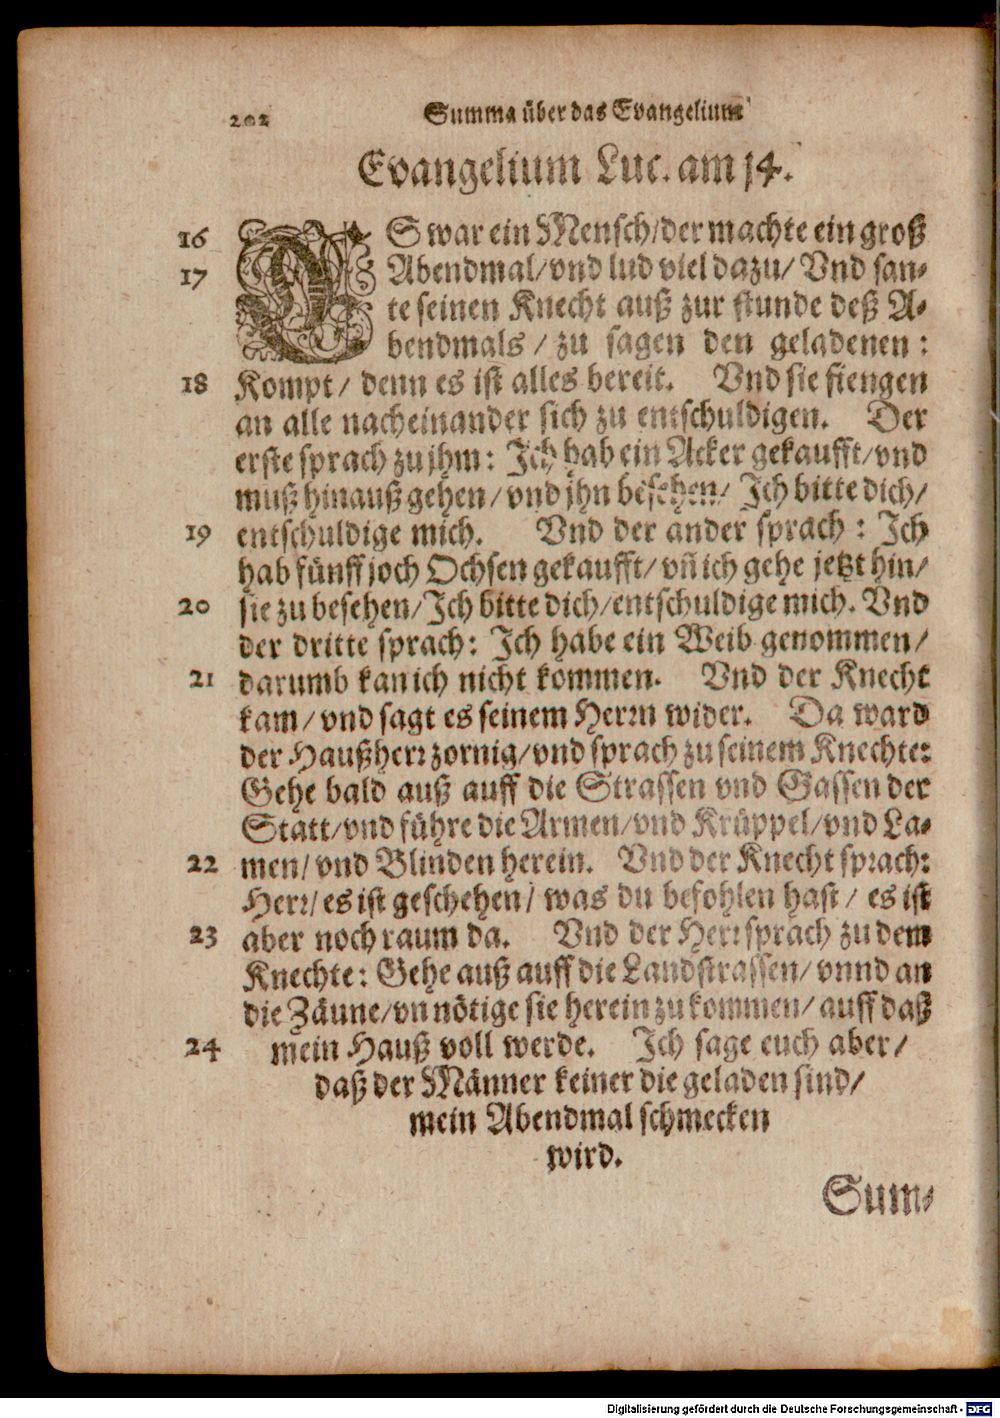 202 Summa über das Evangelium
Evangelium Luc. am 14.
16 ES war ein Mensch/der machte ein groß
17 Abendmal/vnd lud viel dazu/ Vnd san-
te seinen Knecht auß zur stunde deß A-
bendmals / zu sagen den geladenen:
18 Kompt/ denn es ist alles bereit. Vnd sie fiengen
an alle nacheinander sich zu entschuldigen. Der
erste sprach zu jhm: Ich hab ein Acker gekaufft/vnd
muß hinauß gehen/vnd jhn besehen/ Ich bitte dich/
19 entschuldige mich. Vnd der ander sprach: Ich
hab fünff joch Ochsen gekaufft/ vñ ich gehe jetzt hin/
20 sie zu besehen/Ich bitte dich/entschuldige mich. Vnd
der dritte sprach: Ich habe ein Weib genommen/
21 darumb kan ich nicht kommen. Vnd der Knecht
kam/ vnd sagt es seinem Herrn wider. Da ward
der Haußherr zornig/vnd sprach zu seinem Knechte:
Gehe bald auß auff die Strassen vnd Gassen der
Statt/vnd führe die Armen/vnd Krüppel/vnd La-
22 men/ vnd Blinden herein. Vnd der Knecht sprach:
Herr/ es ist geschehen/ was du befohlen hast/ es ist
23 aber noch raum da. Vnd der Herr sprach zu dem
Knechte: Gehe auß auff die Landstrassen/ vnnd an
die Zäune/vn nötige sie herein zu kommen/ auff daß
24 mein Hauß voll werde. Ich sage euch aber/
daß der Männer keiner die geladen sind/
mein Abendmal schmecken
wird.
Sum-
Digitalisierung gefördert durch die Deutsche Forschungsgemeinschaft - DFG